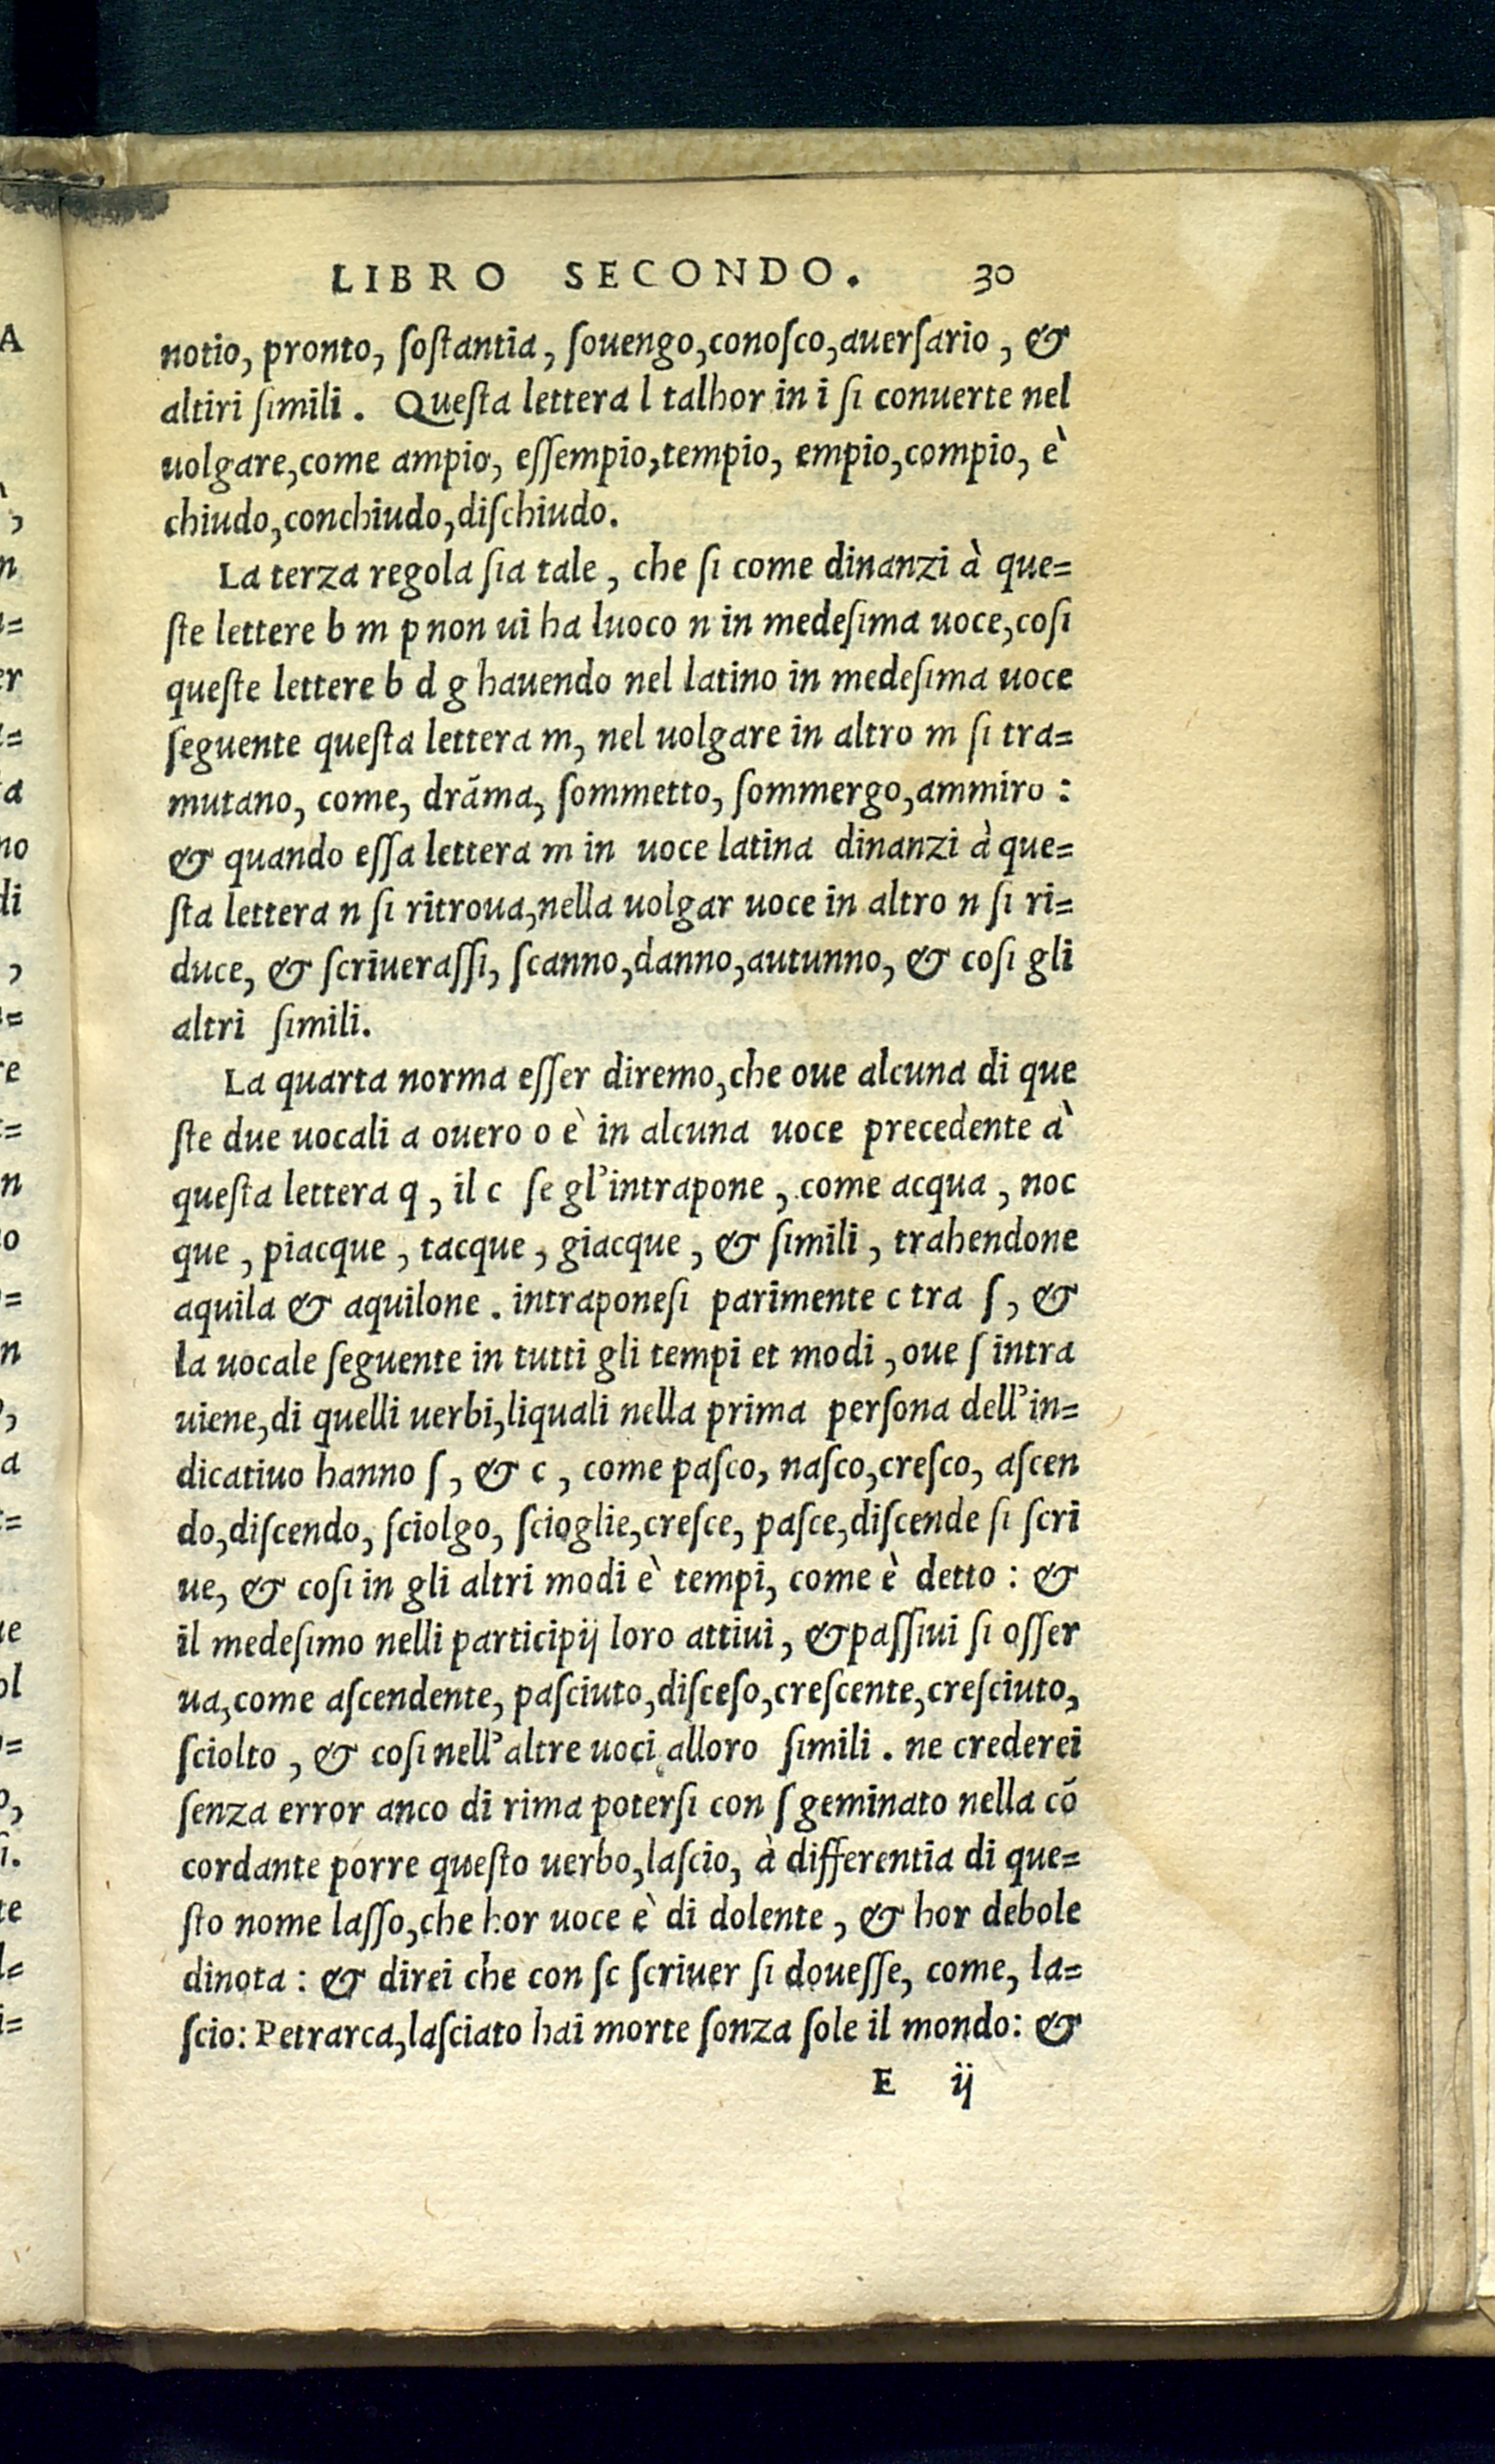 LIBRO SECONDO. 30
notio, pronto, ſoſtantia, ſouengo,conoſco,auerſario, &
altiri ſimili. Queſta lettera l talhor in i ſi conuerte nel
uolgare,come ampio, eſſempio,tempio, empio,compio, è
chiudo,conchiudo,diſchiudo.
La terza regola ſia tale, che ſi come dinanzi à que=
ſte lettere b m p non ui ha luoco n in medeſima uoce,coſi
queſte lettere b d g hauendo nel latino in medeſima uoce
ſeguente queſta lettera m, nel uolgare in altro m ſi tra=
mutano, come, drāma, ſommetto, ſommergo,ammiro:
& quando eſſa lettera m in uoce latina dinanzi à que=
ſta lettera n ſi ritroua,nella uolgar uoce in altro n ſi ri=
duce, & ſcriueraſſi, ſcanno,danno,autunno, & coſi gli
altri ſimili.
La quarta norma eſſer diremo,che oue alcuna di que
ſte due uocali a ouero o è in alcuna uoce precedente à
queſta lettera q, il c ſe gl'intrapone, come acqua, noc
que, piacque, tacque, giacque, & ſimili, trahendone
aquila & aquilone. intraponeſi parimente c tra ſ, &
la uocale ſeguente in tutti gli tempi et modi, oue ſ intra
uiene,di quelli uerbi,liquali nella prima perſona dell'in=
dicatiuo hanno ſ, & c, come paſco, naſco,creſco, aſcen
do,diſcendo, ſciolgo, ſcioglie,creſce, paſce,diſcende ſi ſcri
ue, & coſi in gli altri modi è tempi, come è detto: &
il medeſimo nelli participij loro attiui, & paſſiui ſi oſſer
ua,come aſcendente, paſciuto,diſceſo,creſcente,creſciuto,
ſciolto, & coſi nell'altre uoci alloro ſimili. ne crederei
ſenza error anco di rima poterſi con ſ geminato nella cō
cordante porre queſto uerbo,laſcio, à differentia di que=
ſto nome laſſo,che hor uoce è di dolente, & hor debole
dinota: & direi che con ſc ſcriuer ſi doueſſe, come, la=
ſcio: Petrarca,laſciato hai morte ſonza ſole il mondo: &
E ij